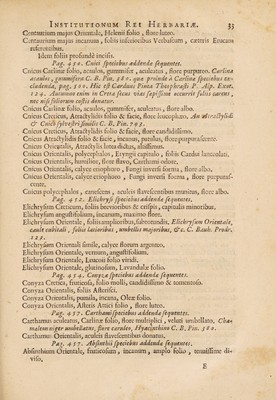 INSTITUTIONUM REI HERBARIÆ. 53
Centaurium majus Orientale, Helenii folio, flore luteo.
Centaurium majus incanum, foliis inferioribus Verbascum, cæteris Erucam
referentibus.
Idem foliis profundè incisis.
Pag. 450. Cnici speciebus addenda sequentes.
Cnicus Carlinæ folio, acaulos, gummifer, aculeatus, flore purpureo. Carlina
acaulos, gummifera C. B. Pin. 380. quæ proinde à Carlinæ speciebus ex-
cludenda, pag. 500. Hic est Carduus Pinea Theophrasti P. Alp. Exot.
124. Autumno enim in Creta sicco vitæ sæpissimè occurrit foliis carens,
nec nisi folliorum costis donatur.
Cnicus Carlinæ folio, acaulos, gummifer, aculeatus, flore albo.
Cnicus Creticus, Atractylidis folio & facie, flore leucophæo. An Atractylidi
& Cnico sylvestri similis C. B. Pin. 378.
Cnicus Creticus, Atractylidis folio & facie, flore candidissimo.
Cnicus Atractylidis folio & facie, incanus, patulus, flore purpurascente.
Cnicus Orientalis, Atractylis lutea dictus, altissimus.
Cnicus Orientalis, polycephalos, Eryngii capitulis, foliis Cardui lanceolati.
Cnicus Orientalis, humilior, flore flavo, Carthami odore.
Cnicus Orientalis, calyce ætiophoro, Fungi inversi forma, flore albo.
Cnicus Orientalis, calyce ætiophoro, Fungi inversi forma, flore purpu-
rascente.
Cnicus polycephalos, canescens, aculeis flavescentibus munitus, flore albo.
Pag. 452. Elichrysi speciebus addenda sequentes.
Elichrysum Creticum, foliis brevioribus & crispis, capitulis minoribus.
Elichrysum angustifolium, incanum, maximo flore.
Elichrysum Orientale, foliis amplioribus, subrotundis. Elichrysum Orientale,
caule cubitali, foliis latioribus, umbellis majoribus, &c. C. Bauh. Prodr.
123.
Elichrysum Orientali simile, calyce florum argenteo.
Elichrysum Orientale, vernum, angustifolium.
Elichrysum Orientale, Leucoii folio viridi.
Elichrysum Orientale, glutinosum, Lavandulæ folio.
Pag. 454. Conyzæ speciebus addenda sequentes.
Conyza Cretica, fruticosa, folio molli, candidissimo & tomentoso.
Conyza Orientalis, foliis Asterisci.
Conyza Orientalis, pumila, incana, Oleæ folio.
Conyza Orientalis, Asteris Attici folio, flore luteo.
Pag. 457. Carthami speciebus addenda sequentes.
Carthamus aculeatus, Carlinæ folio, flore multiplici, veluti umbellato. Cha-
mæleon niger umbellatus, flore cæruleo, Hyacinthino C. B. Pin. 380.
Carthamus Orientalis, aculeis flavescentibus donatus.
Pag. 457. Absinthii speciebus addenda sequentes.
Absinthium Orientale, fruticosum, incanum, amplo folio, tenuissimè di-
viso.
E